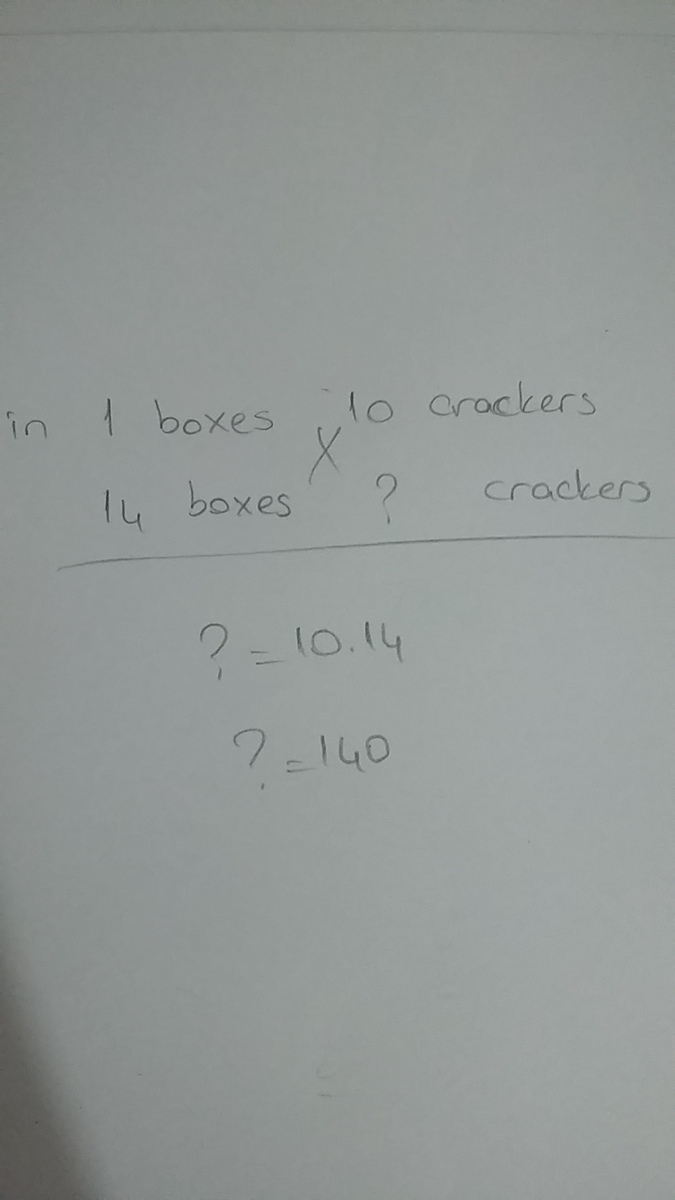 in 1 boxes 10 crackers
X
14 boxes ? crackers
? = 10.14
? = 140